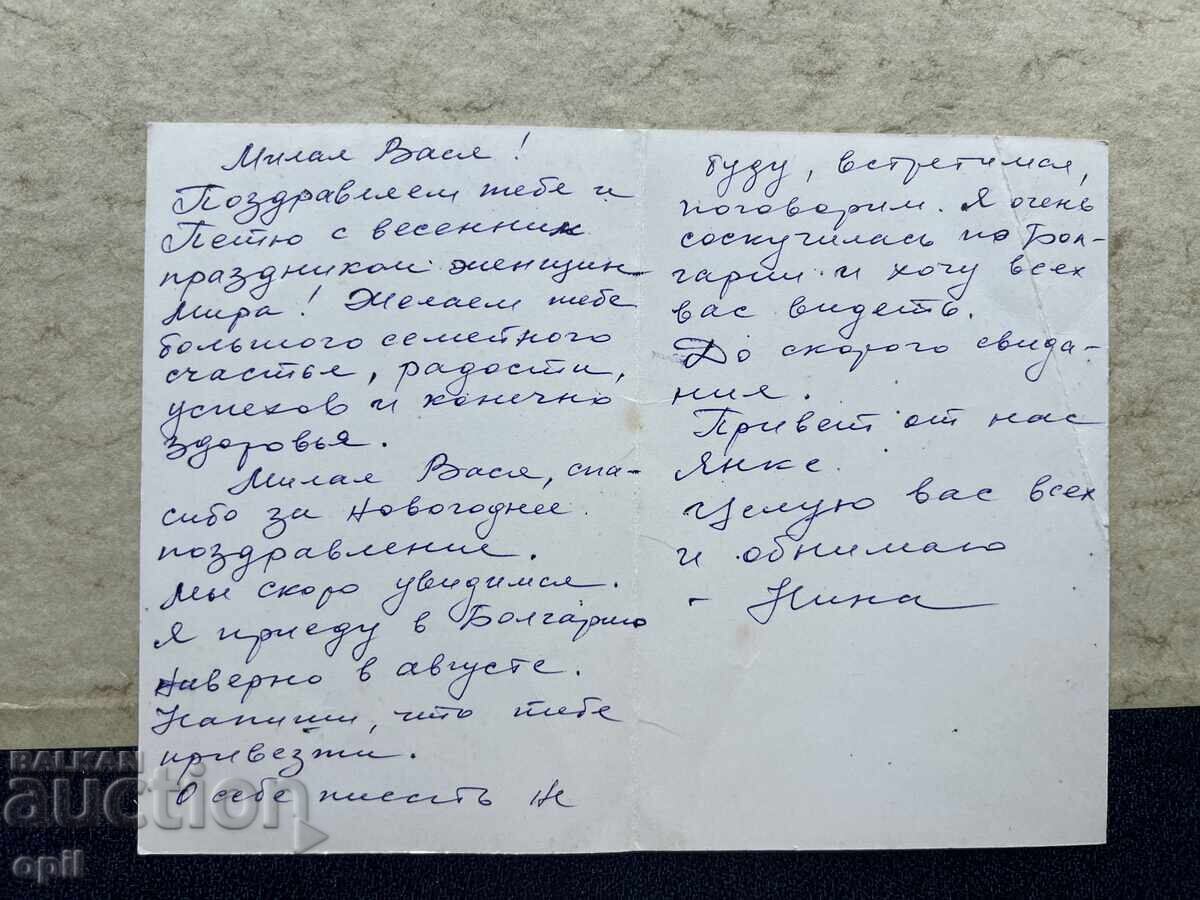 Милая Вася!
Поздравляем тебе и
Петю с весенним
праздником женщин
Мира! Желаем тебе
большого семейного
счастья, радости,
успехов и конечно
здоровья.
Милая Вася, спа-
сибо за новогоднее
поздравление.
Мы скоро увидимся.
Я приеду в Болгарию
наверно в августе.
Напиши, что тебе
привезти.
О себе писать не
буду, встретимся,
поговорим. Я очень
соскучилась по Бол-
гарии и хочу всех
вас видеть.
До скорого свида-
ния.
Привет от нас
Янке.
Целую вас всех
и обнимаю
- Нина
BALKAN
auction
opil